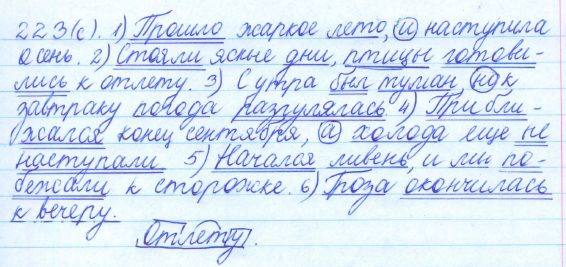 223(с). 1) Прошло жаркое лето, и наступила
осень. 2) Стояли ясные дни, птицы готови-
лись к отлету. 3) С утра был туман, но к
завтраку погода разгулялась 4) Прибли-
жался конец сентября, а холода еще не
наступали. 5) Начался ливень, и мы по-
бежали к сторожке. 6) Гроза окончилась
к вечеру.
Отлету.